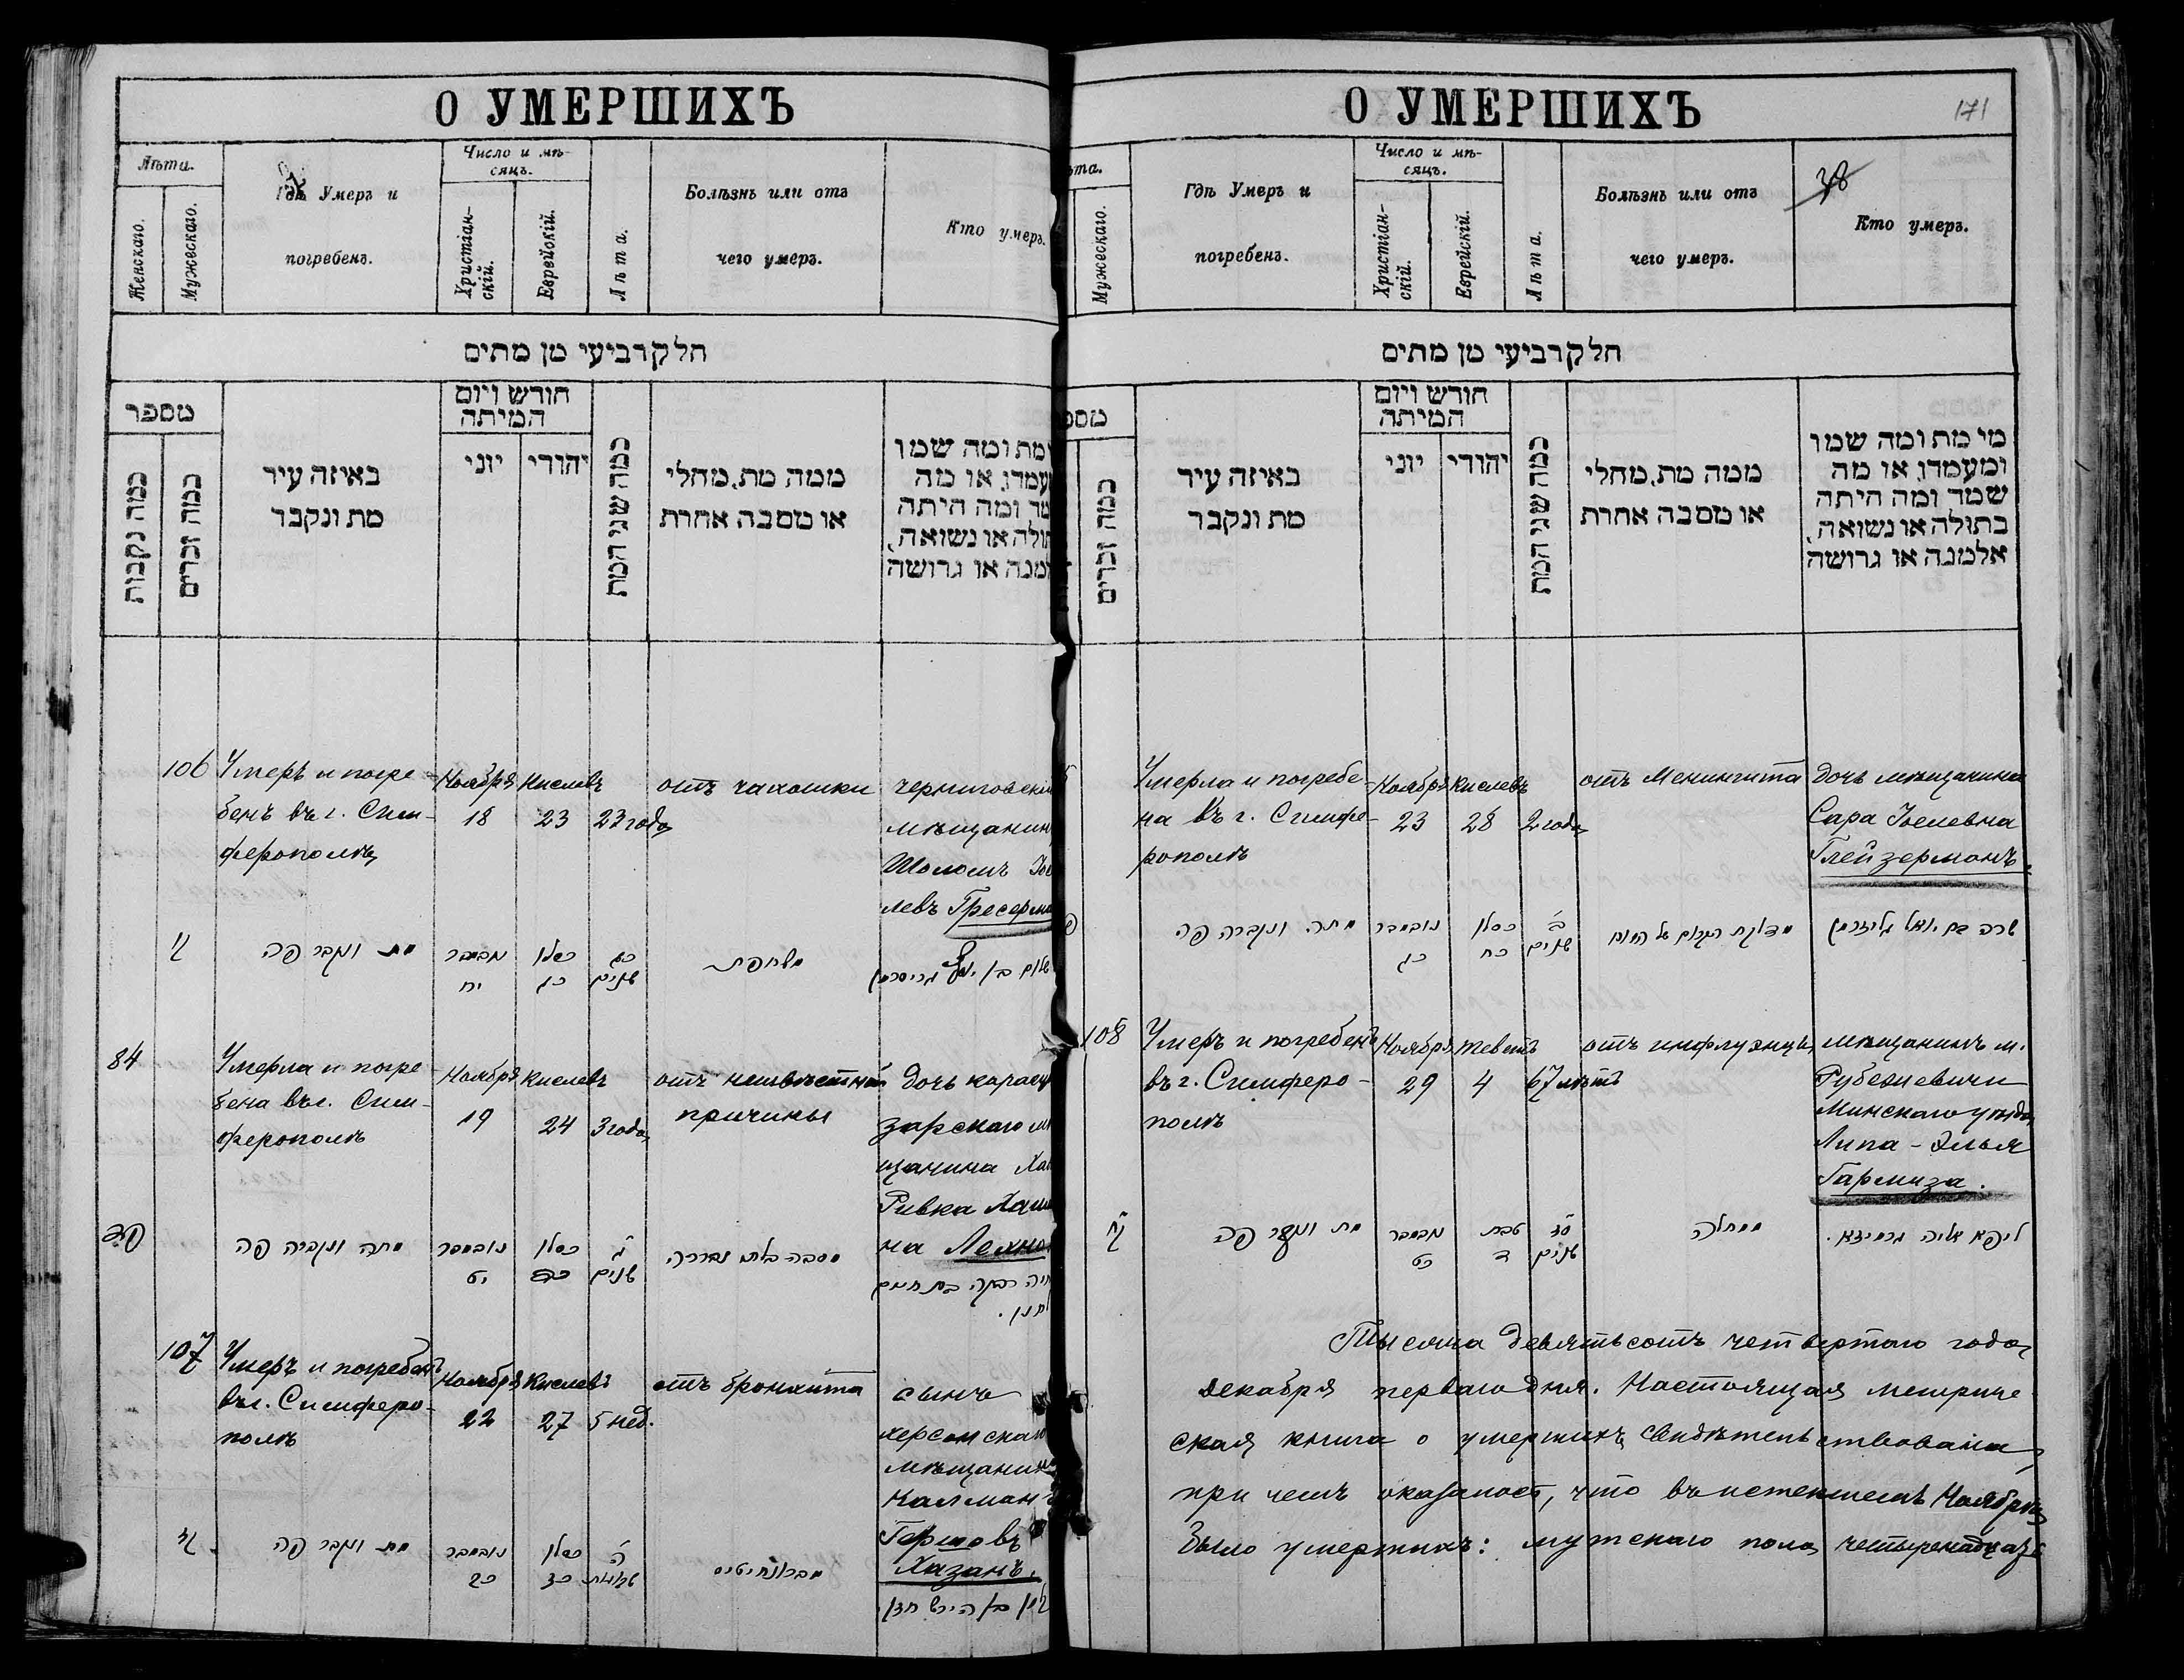 О УМЕРШИХЪ
Лѣта.
Женскаго.
Мужескаго.
Гдѣ Умеръ и
погребенъ.
Число и мѣ-
сяцъ.
Христіан-
скій.
Еврейскій.
Лѣта.
Болѣзнь или отъ
чего умеръ.
Кто умеръ.
חלק רביעי מן מתים
מספר
כמה נקבות
כמה זכרים
באיזה עיר
מת ונקבר
חודש ויום
המיתה
יוני
יהודי
כמה שני המת
ממה מת, מחלי
או מסבה אחרת
מת ומה שמו
עמדו, או מה
מד ומה היתה
תולה או נשואה,
מנה או גרושה
106
Умеръ и погре-
бенъ въ г. Сим-
ферополѣ
Ноября
18
Кислевъ
23
23 года
отъ чахотки
черниговскій
мѣщанин
Шоломъ
левъ Гресерма
מת ונקבר פה
נובמבר
יח
כסלו
כג
כג
שנים
משחפת
שלום בן
84
Умерла и погре-
бена въ г. Сим-
ферополѣ
Ноября
19
Кислевъ
24
3 года
отъ неизвѣстной
причины
дочь карасу
зарскаго мѣ
щанина Хая
Ривка Хаим
на Лехно
פד
מתה ונקברה פה
נובמבר
יט
כסלו
כד
ג
שנים
מסבה בלתי נודעה
חיה רבקה בת חיים
107
Умеръ и погребенъ
въ г. Симферо-
полѣ
Ноября
22
Кислевъ
27
5 нед.
отъ бронхита
сынъ
херсонскаго
мѣщанина
Калманъ
Гершовъ
Хазанъ.
מת ונקבר פה
נובמבר
כב
כסלו
כז
ה
שבועות
מבראנחיטיס
בן הירש חזן
О УМЕРШИХЪ
171
та.
Мужескаго.
Гдѣ Умеръ и
погребенъ.
Число и мѣ-
сяцъ.
Христіан-
скій.
Еврейскій.
Лѣта.
Болѣзнь или отъ
чего умеръ.
Кто умеръ.
חלק רביעי מן מתים
מספ
כמה זכרים
באיזה עיר
מת ונקבר
חודש ויום
המיתה
יוני
יהודי
כמה שני המת
ממה מת, מחלי
או מסבה אחרת
מי מת ומה שמו
ומעמדו, או מה
שמד ומה היתה
בתולה או נשואה,
אלמנה או גרושה
Умерла и погребе-
на въ г. Симфе-
рополѣ
Ноября
23
Кислевъ
28
2 года
отъ Менингита
дочь мѣщанина
Сара Іоелевна
Глейзерманъ.
מתה ונקברה פה
נובמבר
כג
כסלו
כח
ב
שנים
מדלקת הקרום של המוח
שרה בת יואל גליזרמן
108
Умеръ и погребенъ
въ г. Симферо-
полѣ
Ноября
29
Теветъ
4
67 лѣтъ
отъ инфлуэнціи
мѣщанинъ м.
Рубежевичи
Минскаго уѣзда
Липа-Элья
Гармиза.
מת ונקבר פה
נובמבר
כט
טבת
ד
סז
שנים
ממחלה
ליפא אליה גרמיזא.
Тысяча девятьсотъ четвертаго года
декабря перваго дня. Настоящая метриче-
ская книга о умершихъ свидѣтельствована,
при чемъ оказалось, что въ истекшемъ Ноябрѣ
было умершихъ: мужскаго пола четырнадцать